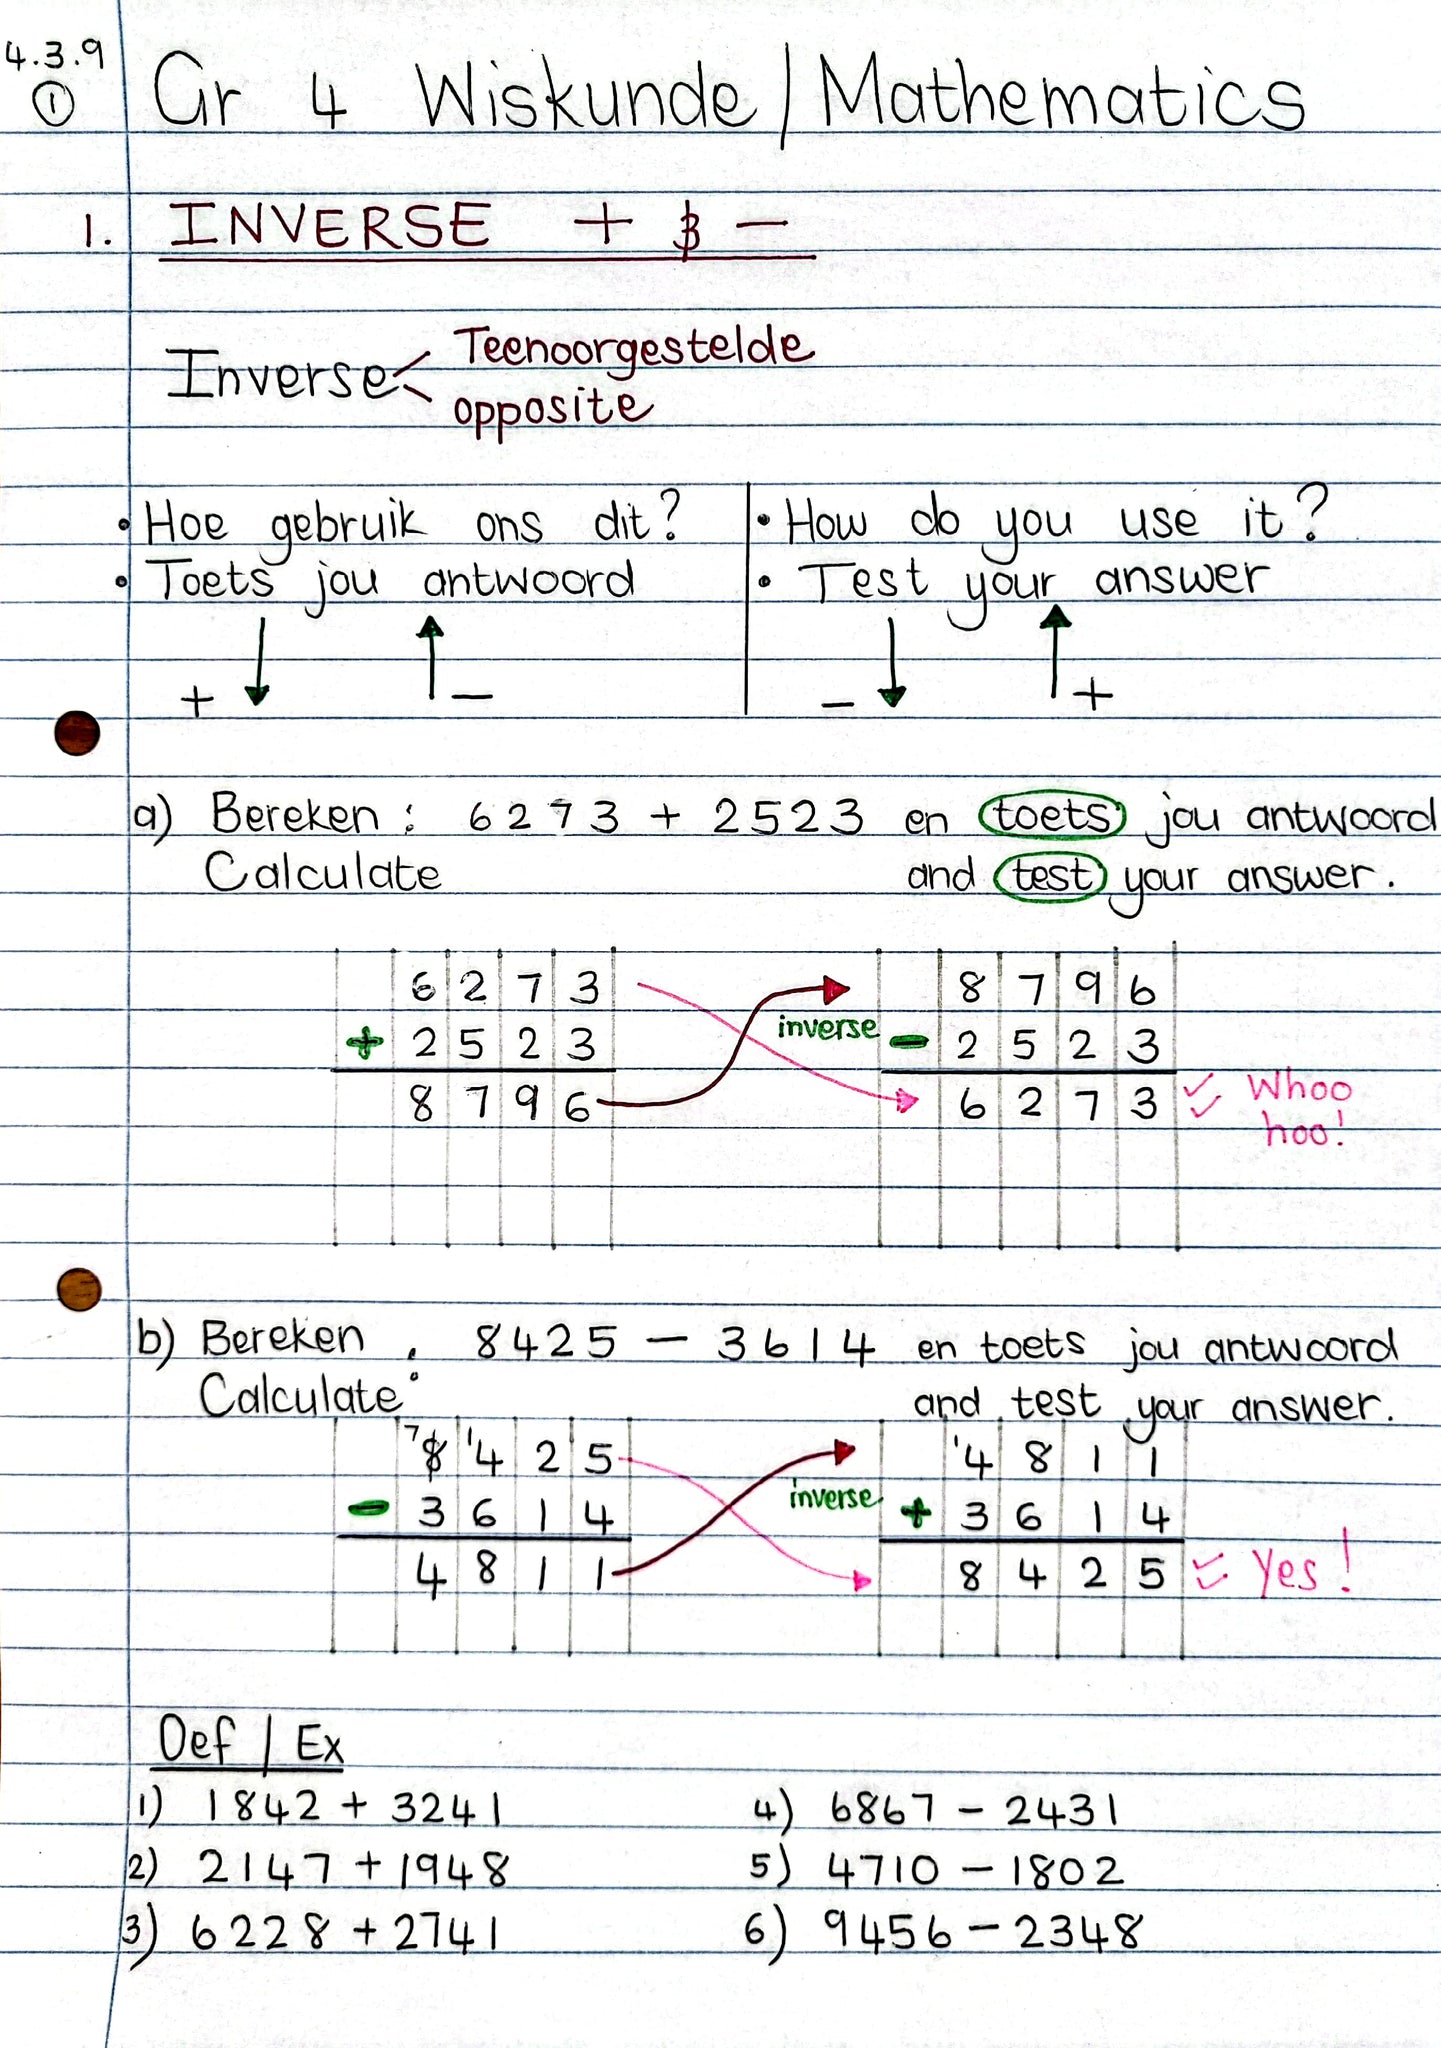 4.3.9
① Gr 4 Wiskunde / Mathematics
1. INVERSE + & -
Inverse < Teenoorgestelde
opposite
• Hoe gebruik ons dit?
• Toets jou antwoord
+ ↓ ↑ -
• How do you use it?
• Test your answer
- ↓ ↑ +
a) Bereken : 6273 + 2523 en toets jou antwoord
Calculate and test your answer.
6 2 7 3
+ 2 5 2 3
8 7 9 6
inverse
8 7 9 6
- 2 5 2 3
6 2 7 3 ✓✓ Whoo
hoo!
b) Bereken : 8425 - 3614 en toets jou antwoord
Calculate and test your answer.
7 8 1 4 2 5
- 3 6 1 4
4 8 1 1
inverse
1 4 8 1 1
+ 3 6 1 4
8 4 2 5 ✓✓ Yes!
Oef / Ex
1) 1842 + 3241
2) 2147 + 1948
3) 6228 + 2741
4) 6867 - 2431
5) 4710 - 1802
6) 9456 - 2348